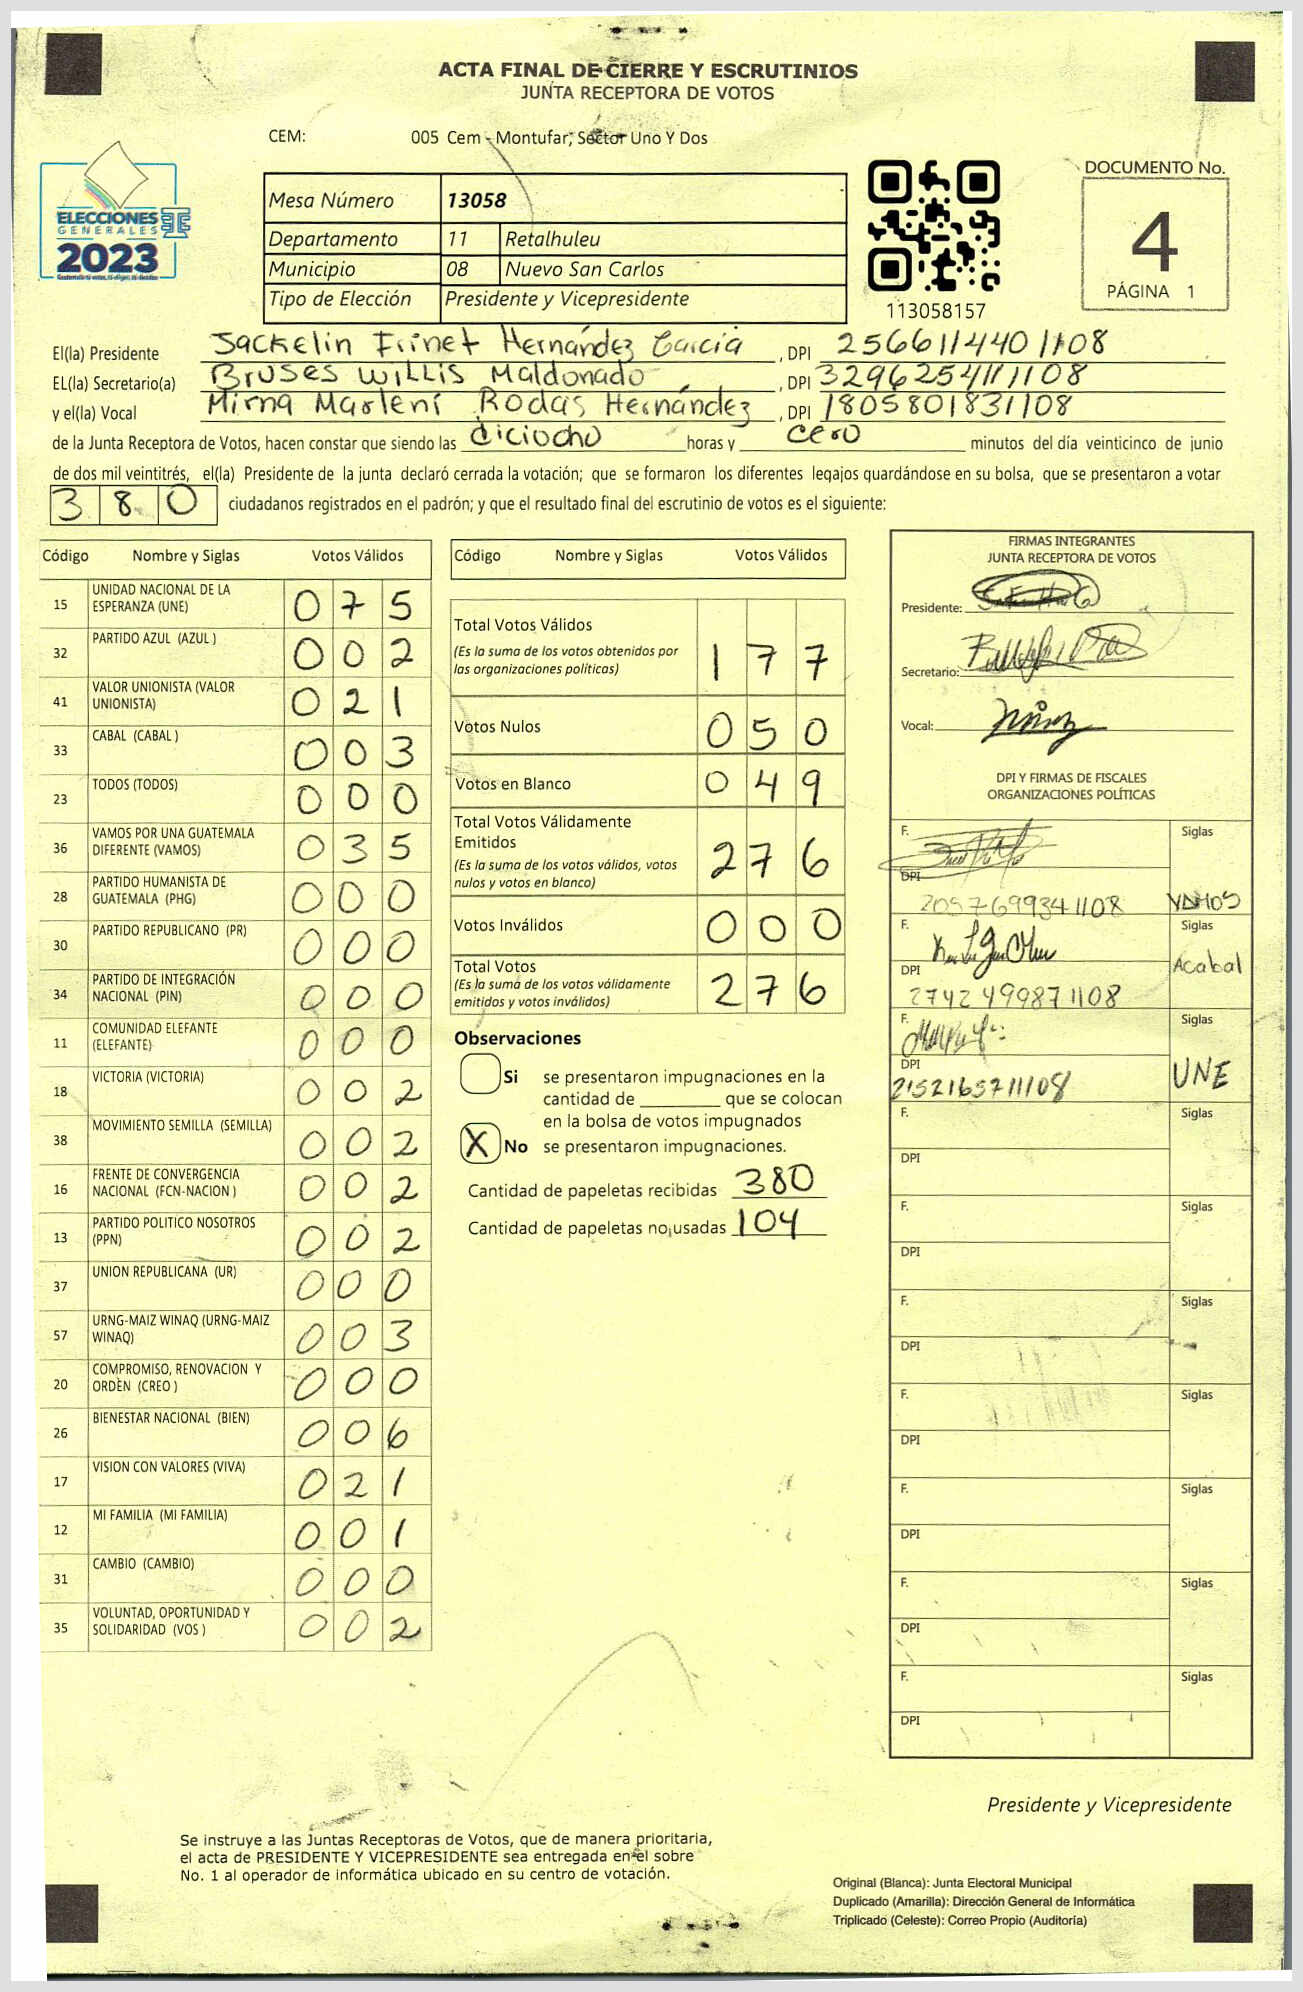 ACTA FINAL DE CIERRE Y ESCRUTINIOS
JUNTA RECEPTORA DE VOTOS
CEM: 005 Cem - Montufar, Sector Uno Y Dos
ELECCIONES
GENERALES
2023
DOCUMENTO No.
4
PÁGINA 1
Mesa Número 13058
Departamento 11 Retalhuleu
Municipio 08 Nuevo San Carlos
Tipo de Elección Presidente y Vicepresidente
113058157
El(la) Presidente Jackelin Irinet Hernández García , DPI 2566114401108
EL(la) Secretario(a) Bruses Willis Maldonado , DPI 3296254111108
y el(la) Vocal Mirna Marleni Rodas Hernández , DPI 1805801831108
de la Junta Receptora de Votos, hacen constar que siendo las diciocho horas y cero minutos del día veinticinco de junio
de dos mil veintitrés, el(la) Presidente de la junta declaró cerrada la votación; que se formaron los diferentes legajos quardándose en su bolsa, que se presentaron a votar
380 ciudadanos registrados en el padrón; y que el resultado final del escrutinio de votos es el siguiente:
Código Nombre y Siglas Votos Válidos
15 UNIDAD NACIONAL DE LA ESPERANZA (UNE) 0 7 5
32 PARTIDO AZUL (AZUL ) 0 0 2
41 VALOR UNIONISTA (VALOR UNIONISTA) 0 2 1
33 CABAL (CABAL ) 0 0 3
23 TODOS (TODOS) 0 0 0
36 VAMOS POR UNA GUATEMALA DIFERENTE (VAMOS) 0 3 5
28 PARTIDO HUMANISTA DE GUATEMALA (PHG) 0 0 0
30 PARTIDO REPUBLICANO (PR) 0 0 0
34 PARTIDO DE INTEGRACIÓN NACIONAL (PIN) 0 0 0
11 COMUNIDAD ELEFANTE (ELEFANTE) 0 0 0
18 VICTORIA (VICTORIA) 0 0 2
38 MOVIMIENTO SEMILLA (SEMILLA) 0 0 2
16 FRENTE DE CONVERGENCIA NACIONAL (FCN-NACION ) 0 0 2
13 PARTIDO POLITICO NOSOTROS (PPN) 0 0 2
37 UNION REPUBLICANA (UR) 0 0 0
57 URNG-MAIZ WINAQ (URNG-MAIZ WINAQ) 0 0 3
20 COMPROMISO, RENOVACION Y ORDEN (CREO ) 0 0 0
26 BIENESTAR NACIONAL (BIEN) 0 0 6
17 VISION CON VALORES (VIVA) 0 2 1
12 MI FAMILIA (MI FAMILIA) 0 0 1
31 CAMBIO (CAMBIO) 0 0 0
35 VOLUNTAD, OPORTUNIDAD Y SOLIDARIDAD (VOS ) 0 0 2
Código Nombre y Siglas Votos Válidos
Total Votos Válidos
(Es la suma de los votos obtenidos por
las organizaciones políticas) 1 7 7
Votos Nulos 0 5 0
Votos en Blanco 0 4 9
Total Votos Válidamente
Emitidos
(Es la suma de los votos válidos, votos
nulos y votos en blanco) 2 7 6
Votos Inválidos 0 0 0
Total Votos
(Es la suma de los votos válidamente
emitidos y votos inválidos) 2 7 6
Observaciones
Si se presentaron impugnaciones en la
cantidad de ________ que se colocan
en la bolsa de votos impugnados
X No se presentaron impugnaciones.
Cantidad de papeletas recibidas 380
Cantidad de papeletas no usadas 104
FIRMAS INTEGRANTES
JUNTA RECEPTORA DE VOTOS
Presidente:
Secretario:
Vocal:
DPI Y FIRMAS DE FISCALES
ORGANIZACIONES POLÍTICAS
F. Siglas
DPI
2057699341108 VAMOS
F. Siglas
DPI Acabal
2742499871108
F. Siglas
DPI UNE
2152165711108
F. Siglas
DPI
F. Siglas
DPI
F. Siglas
DPI
F. Siglas
DPI
F. Siglas
DPI
F. Siglas
DPI
F. Siglas
DPI
Presidente y Vicepresidente
Se instruye a las Juntas Receptoras de Votos, que de manera prioritaria,
el acta de PRESIDENTE Y VICEPRESIDENTE sea entregada en el sobre
No. 1 al operador de informática ubicado en su centro de votación.
Original (Blanca): Junta Electoral Municipal
Duplicado (Amarilla): Dirección General de Informática
Triplicado (Celeste): Correo Propio (Auditoría)